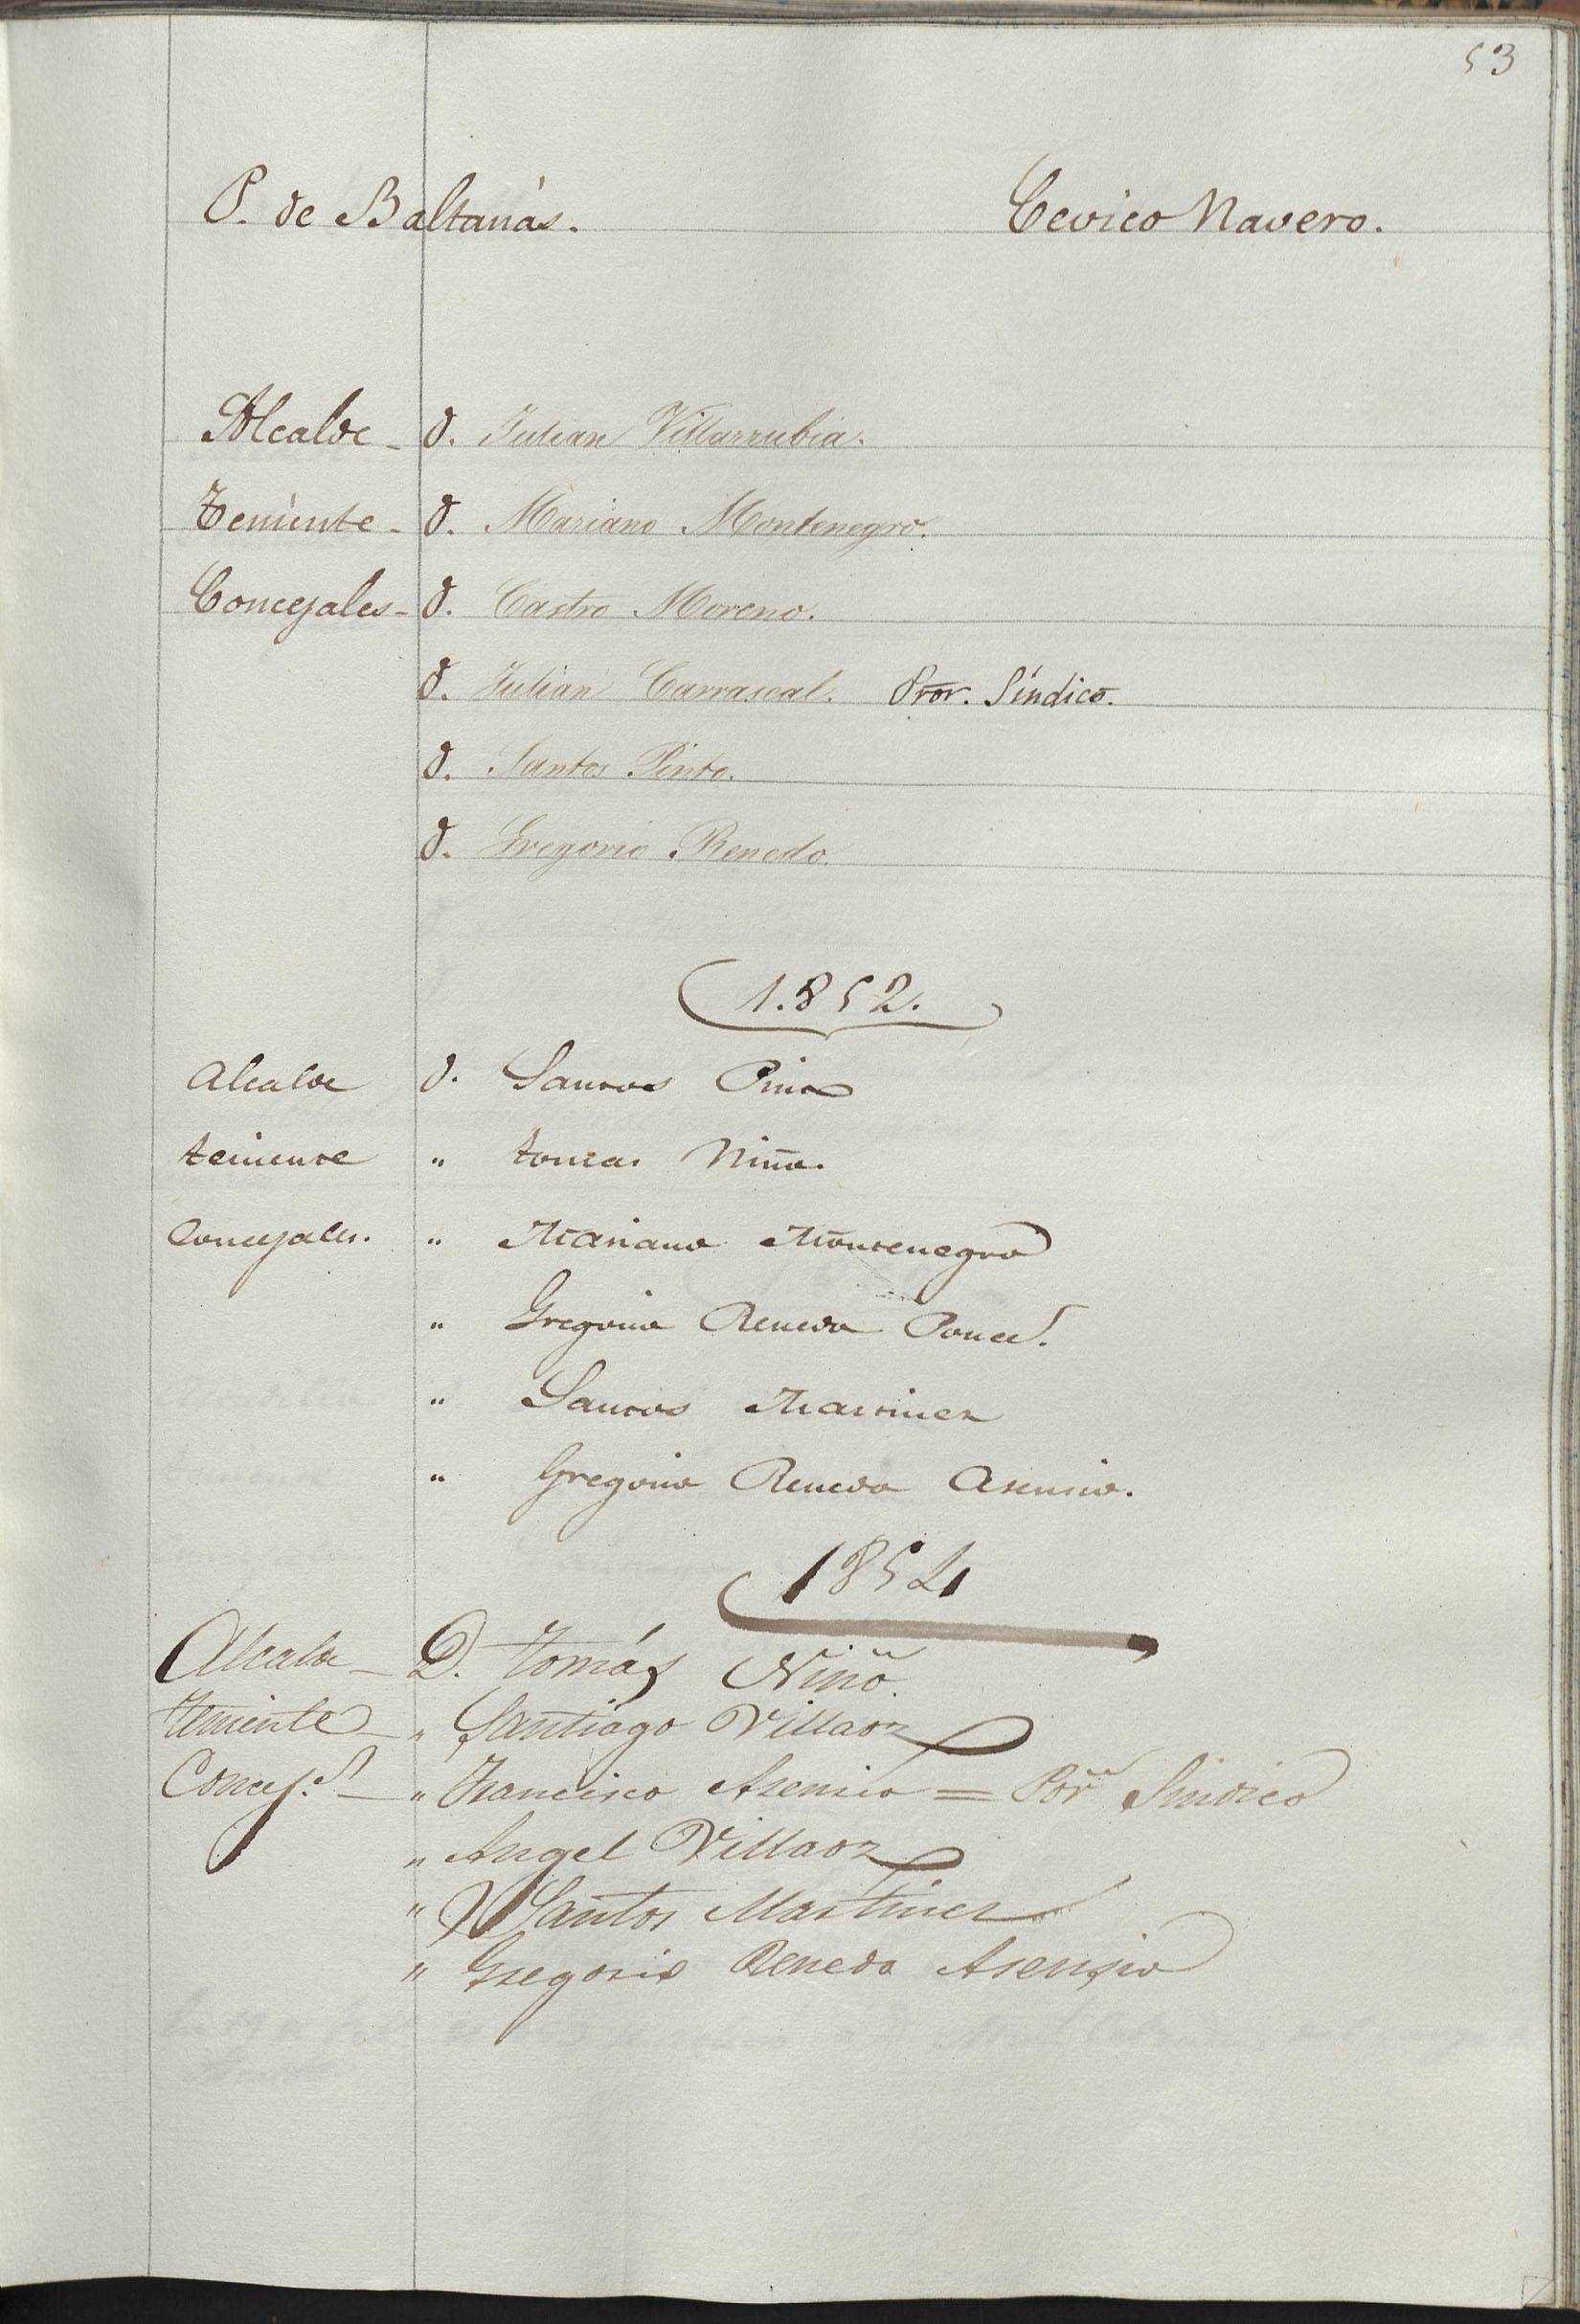 53
P. de Baltanás. Cevico Navero.
Alcalde - D. Julian Villarrubia.
Teniente - D. Mariano Montenegro.
Concejales - D. Castro Moreno.
D. Julian Carrascal. Pror. Síndico.
D. Santos Pinto.
D. Gregorio Renedo.
1.852.
Alcalde D. Santos Pinto
teniente " tomas Niño.
Concejales. " Mariano Montenegro
" Gregorio Renedo Ponce.
" Santos Martinez
" Gregorio Renedo Asensio.
1854
Alcalde - D. Tomás Niño.
Teniente - " Santiago Villaoz
Concej.s - " Francisco Asensio = Por Sindico
" Angel Villaoz
" Santos Martinez
" Gregorio Renedo Asensio